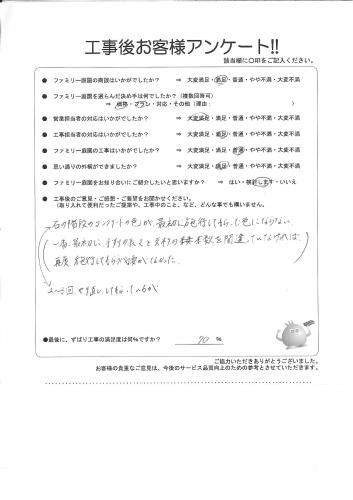 工事後お客様アンケート!!
該当欄に〇印をご記入ください。
● ファミリー庭園の商談はいかがでしたか? ⇒ 大変満足・満足・普通・やや不満・大変不満
● ファミリー庭園を選らんだ決め手は何でしたか?(複数回答可)
⇒ 価格・プラン・対応・その他(理由: )
● 営業担当者の対応はいかがでしたか? ⇒ 大変満足・満足・普通・やや不満・大変不満
● 工事担当者の対応はいかがでしたか? ⇒ 大変満足・満足・普通・やや不満・大変不満
● ファミリー庭園の工事はいかがでしたか? ⇒ 大変満足・満足・普通・やや不満・大変不満
● 思い通りの外構ができましたか? ⇒ 大変満足・満足・普通・やや不満・大変不満
● ファミリー庭園をお知り合いにご紹介したいと思いますか? ⇒ はい・検討します・いいえ
● 工事後のご意見・ご感想・ご要望をお聞かせください。
(取り入れて便利だったご提案や、工事中のこと、など、どんな事でも構いません。
石の階段のコンクリートの色が、最初に施行してもらった色にならない
一番最初に、手すりの長さと 本数を間違っていなければ、
再度 施行してもらう必要がなかった。
2~3回 やり直してもらっているが
●最後に、ずばり工事の満足度は何%ですか? 70 %
ご協力いただきありがとうございました。
お客様の貴重なご意見は、今後のサービス品質向上のための参考とさせていただきます。